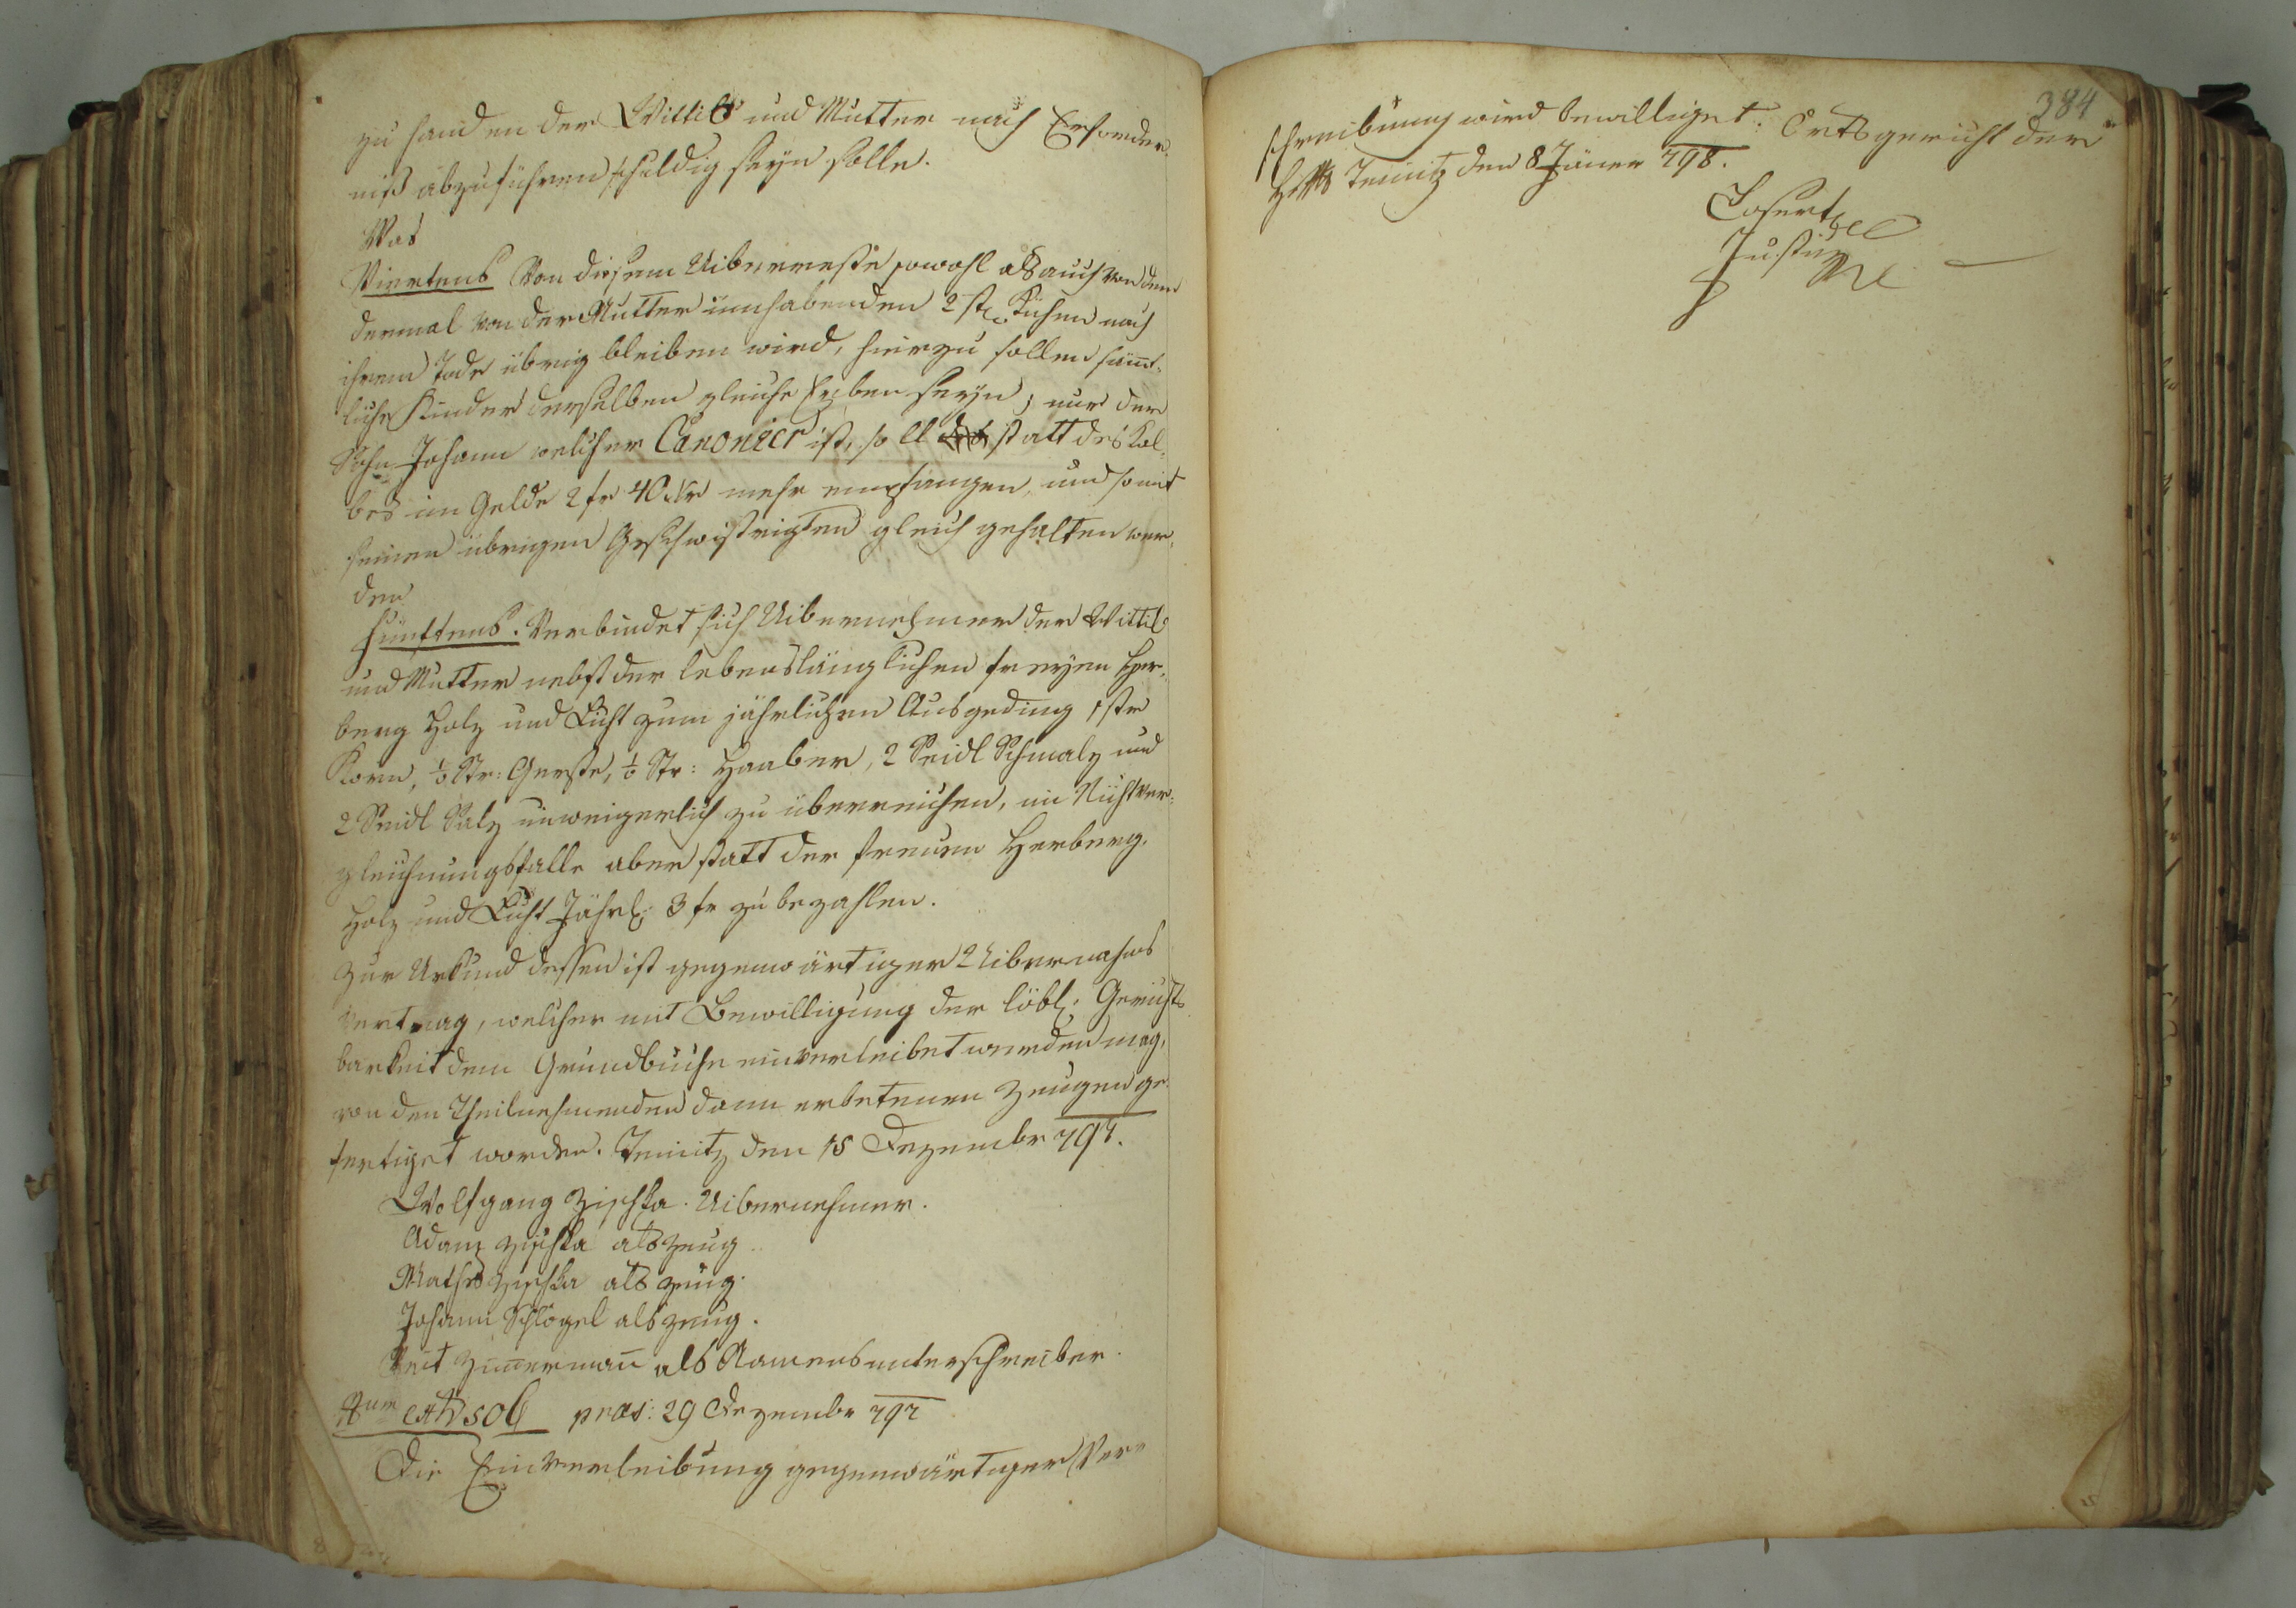 zu handen der Wittib und Mutter nach Erforder-
niß abzuführen schuldig seyn solle.
Was
Viertens Von diesem Uiberreste sowohl als auch von dem
dermal von der Mutter innhabenden 2 st. Kühen nach
ihrem Tode übrig bleiben wird, hierzu sollen sämt-
liche Kinder derselben gleiche Erben seyn; nur der
Sohn Johann welcher Canonier ist, soll statt des Kal-
bes im Gelde 2 fr 40 Xr mehr empfangen, und somit
seinen übrigen Geschwistrigten gleich gehalten wer-
den
Fünftens. Verbindet sich Uibernehmer der Wittib
und Mutter nebst der lebenslänglichen freyen Her-
berg Holz und Licht zum jährlichen Ausgeding 1 str
Korn, ½ Str: Gerste, ½ Str: Haaber, 2 Seidl Schmalz und
2 Seidl Salz unweigerlich zu überreichen, im Nichtver-
gleichungsfalle aber statt der freuen Herberg,
Holz und Licht Jährl. 3 fr zu bezahlen.
Zur Urkund dessen ist gegenwärtiger Uibernahms
Vertrag, welcher mit Bewilligung der löbl. Gerichts
barkeit dem Grundbuche einverleibet werden mag,
von den Theilnehmenden dann erbetenen Zeugen ge-
fertiget worden. Teinitz den 15 Dezember 797.
Wolfgang Zischka Uibernehmer.
Adam Zischka als Zeug
Mathes Zischka als Zeug.
Johann Schlögel als Zeug.
Veit Zimerman als Namensunterschreiber.
præs: 29 Dezember 797
Die Einverleibung gegenwärtiger Ver-
384
schreibung wird bewilliget. Ortsgericht der
Hfft Teinitz den 8 Jäner 798.
Justiz